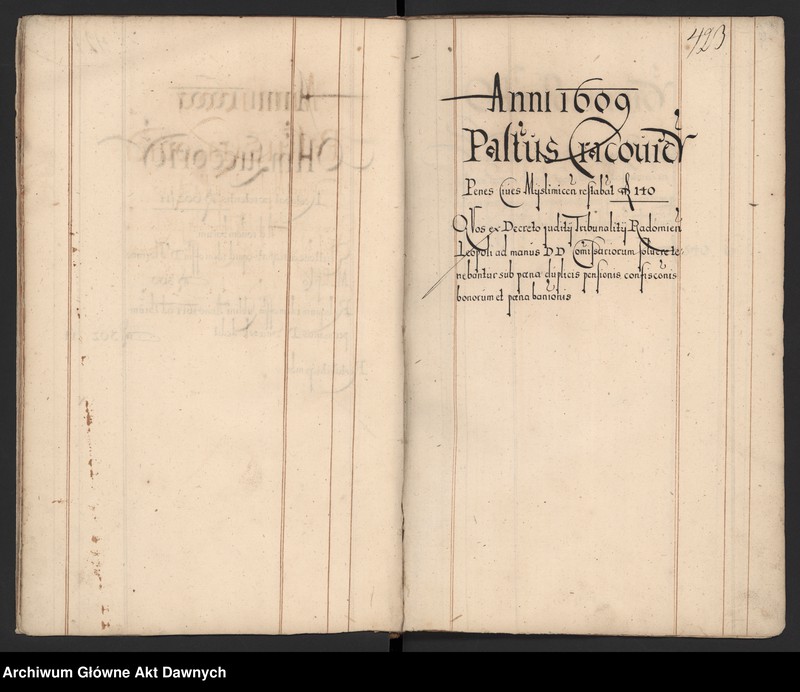 423
Anni 1609
Pastus Cracovien
Penes Cives Myslimicen restabat fl 140
Quos ex Decreto juditii Tribunalitii Radomien
Leopoli ad manus D D Comissariorum solvere te-
nebantur sub pæna duplicis pensionis confisconis
bonorum et pæna banionis
Archiwum Główne Akt Dawnych